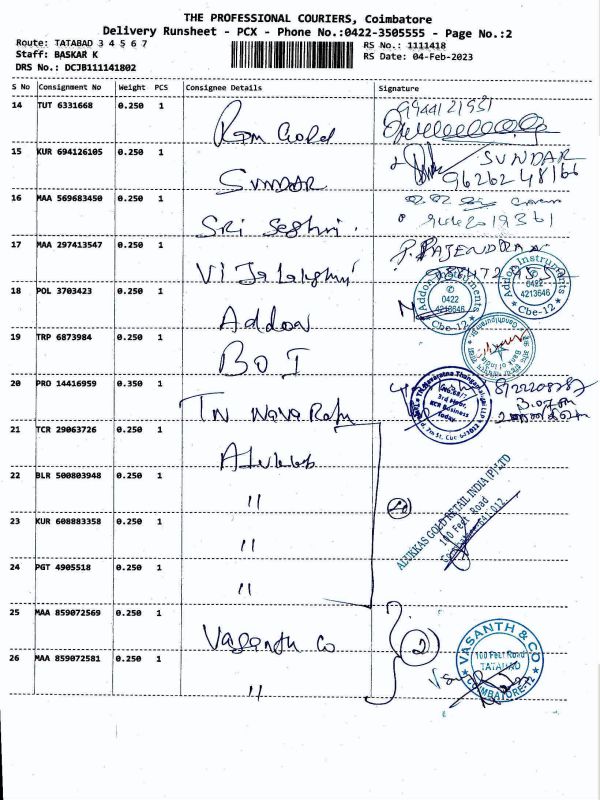 THE PROFESSIONAL COURIERS, Coimbatore
Delivery Runsheet - PCX - Phone No.:0422-3505555 - Page No.:2
Route: TATABAD 3 4 5 6 7
Staff: BASKAR K
DRS No.: DCJB111141802
RS No.: 1111418
RS Date: 04-Feb-2023
S No Consignment No Weight PCS Consignee Details Signature
14 TUT 6331668 0.250 1 Rpm Gold 9944121551
15 KUR 694126105 0.250 1 SUNDAR SUNDAR
9626248166
16 MAA 569683450 0.250 1 Sri
17 MAA 297413547 0.250 1 P. RAJENDRAN
18 POL 3703423 0.250 1 Addon
Addon Instruments
0422
4213646
Cbe-12
Addon Instruments
0422
4213646
Cbe-12
19 TRP 6873984 0.250 1 BOI
20 PRO 14416959 0.350 1 TN Nava Ratn
3rd Floor
KCR Business
Today
21 TCR 29063726 0.250 1 Alukkas
22 BLR 500803948 0.250 1 "
23 KUR 608883358 0.250 1 "
24 PGT 4905518 0.250 1 "
4
ALUKKAS GOLD RETAIL INDIA (P) LTD
100 Feet Road
25 MAA 859072569 0.250 1 Vasanth Co
26 MAA 859072581 0.250 1 "
2
VASANTH & CO
100 Feet Road
TATABAD
COIMBATORE-12